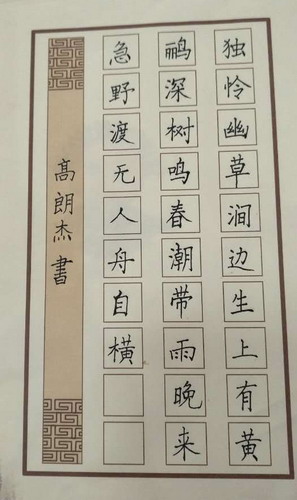 独怜幽草涧边生上有黄
鹂深树鸣春潮带雨晚来
急野渡无人舟自横
髙朗杰書